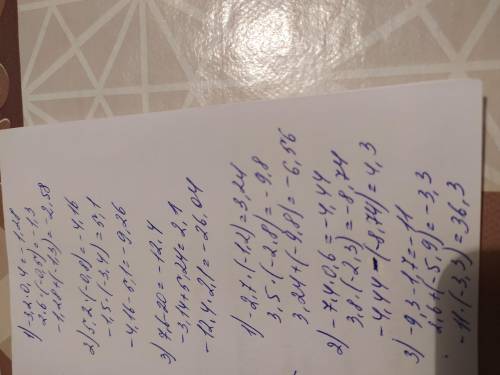 1) -3,2·0,4=-1,28
2,6·(-0,5)=-1,3
-1,28+(-1,3)=-2,58
2) 5,2·(-0,8)=-4,16
-1,5·(-3,4)=5,1
-4,16-5,1=-9,26
3) 7,6-20=-12,4
-3,14+5,24=2,1
-12,4·2,1=-26,04
1) -2,7·(-1,2)=3,24
3,5·(-2,8)=-9,8
3,24+(-9,8)=-6,56
2) -7,4·0,6=-4,44
3,8·(-2,3)=-8,74
-4,44-(-8,74)=4,3
3) -9,3-1,7=-11
2,6+(-5,9)=-3,3
-11·(-3,3)=36,3